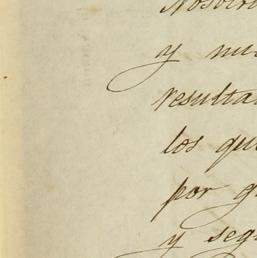 Nosotr
y nu
resulta
los qu
por g
y seg